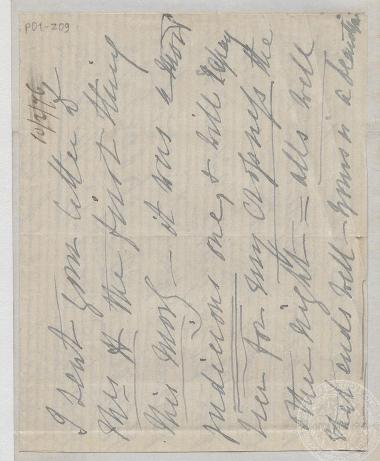 PD1-209
10/2/76
I sent your letter to
Mrs H the first thing
this morng — it was a most
judicious one, & will repay
her for my crossness the
other night — alls well
that ends well — yours is a beautiful